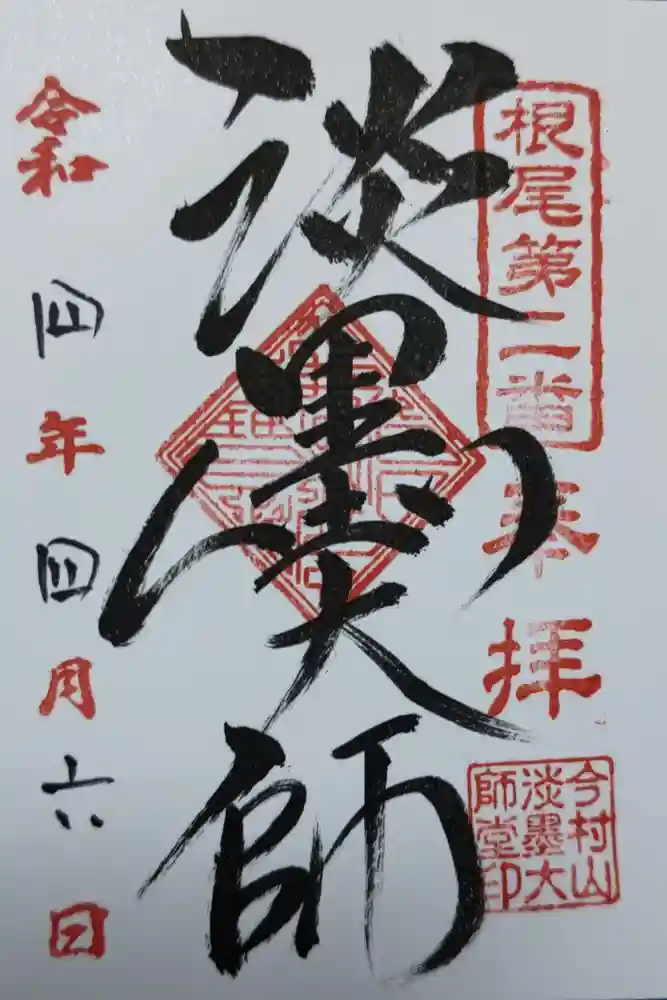 根尾第二番
奉拝
今村山
淡墨大
師堂印
淡墨大師
令和四年四月六日